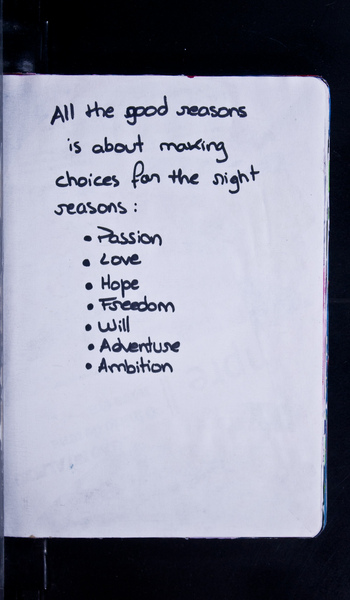 All the good reasons
is about making
choices for the right
reasons:
• Passion
• Love
• Hope
• Freedom
• Will
• Adventure
• Ambition